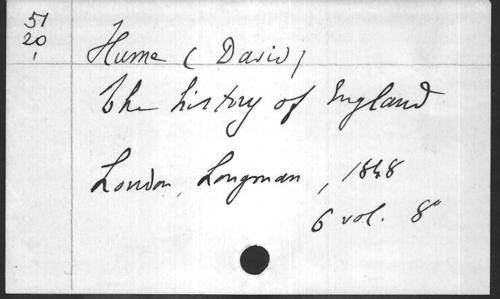 51
20
1
Hume (David)
The history of England
London, Longman, 1848
6 vol. 8°